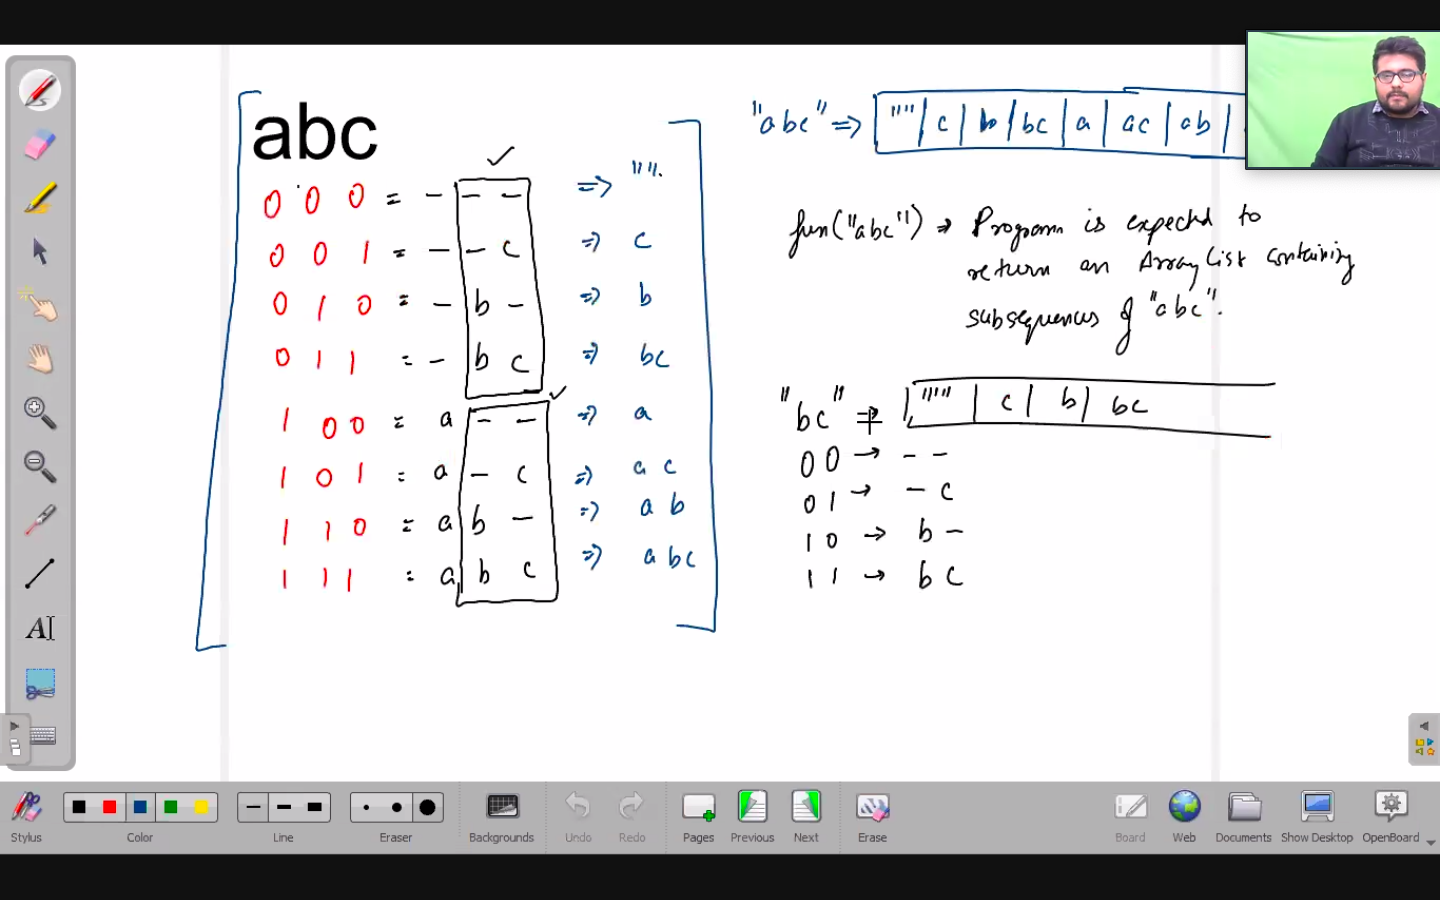 abc
0 0 0 = - - - => "".
0 0 1 = - - c => c
0 1 0 = - b - => b
0 1 1 = - b c => bc
1 0 0 = a - - => a
1 0 1 = a - c => a c
1 1 0 = a b - => a b
1 1 1 = a b c => a bc
"abc" => "" | c | b | bc | a | ac | ab |
fun("abc") => Program is expected to
return an ArrayList containing
subsequences of "abc".
"bc" => "" | c | b | bc
0 0 → - -
0 1 → - c
1 0 → b -
1 1 → b c
Stylus
Color
Line
Eraser
Backgrounds
Undo
Redo
Pages
Previous
Next
Erase
Board
Web
Documents
Show Desktop
OpenBoard